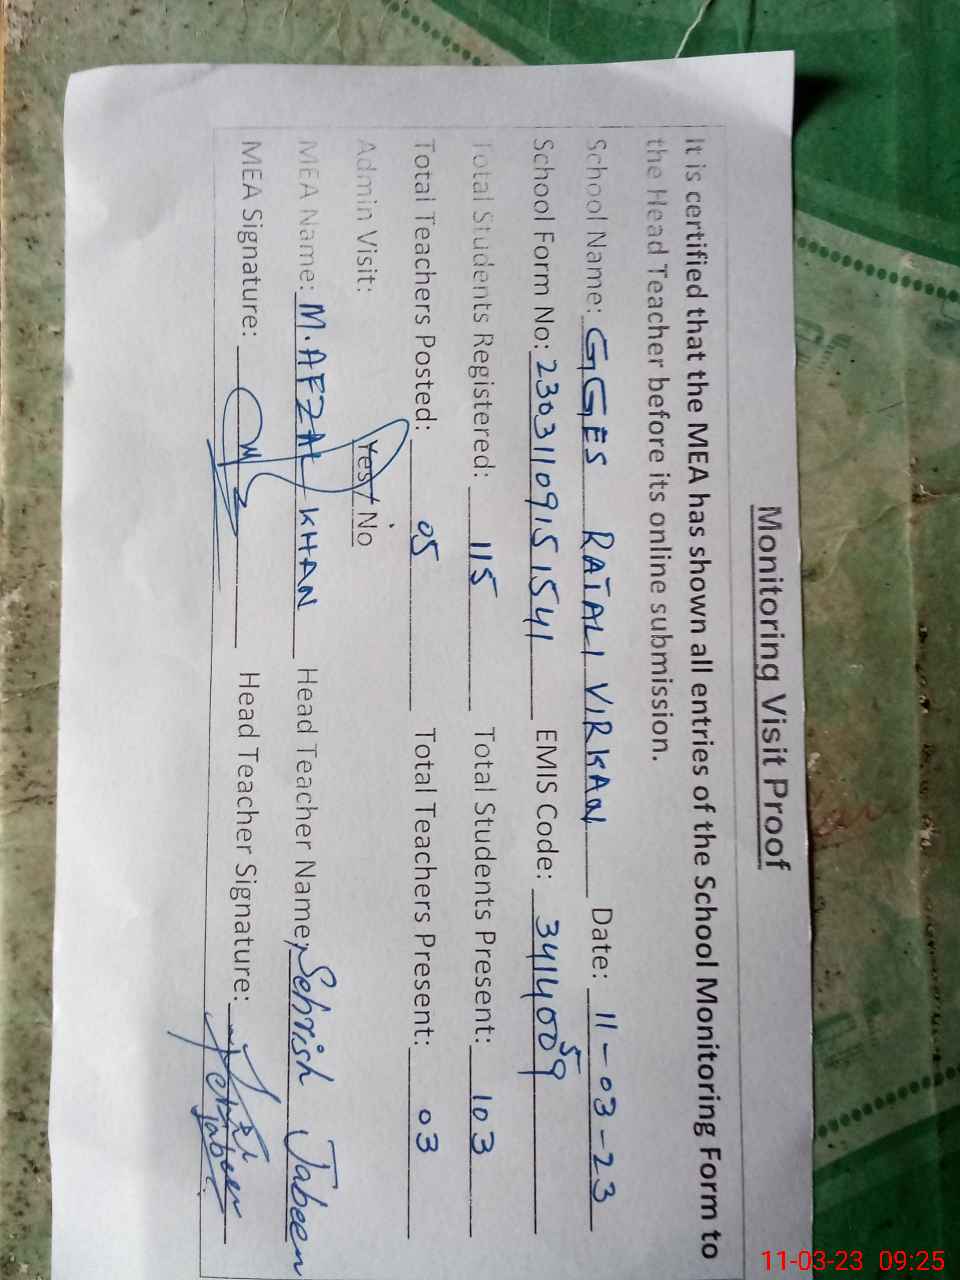 Monitoring Visit Proof
It is certified that the MEA has shown all entries of the School Monitoring Form to
the Head Teacher before its online submission.
School Name: GGES RATALI VIRKAN Date: 11-03-23
School Form No: 23031109151541 EMIS Code: 34140059
Total Students Registered: 115 Total Students Present: 103
Total Teachers Posted: 05 Total Teachers Present: 03
Admin Visit: Yes / No
MEA Name: M. AFZAL KHAN Head Teacher Name: Sehrish Jabeen
MEA Signature: Head Teacher Signature: Jabeen
11-03-23 09:25